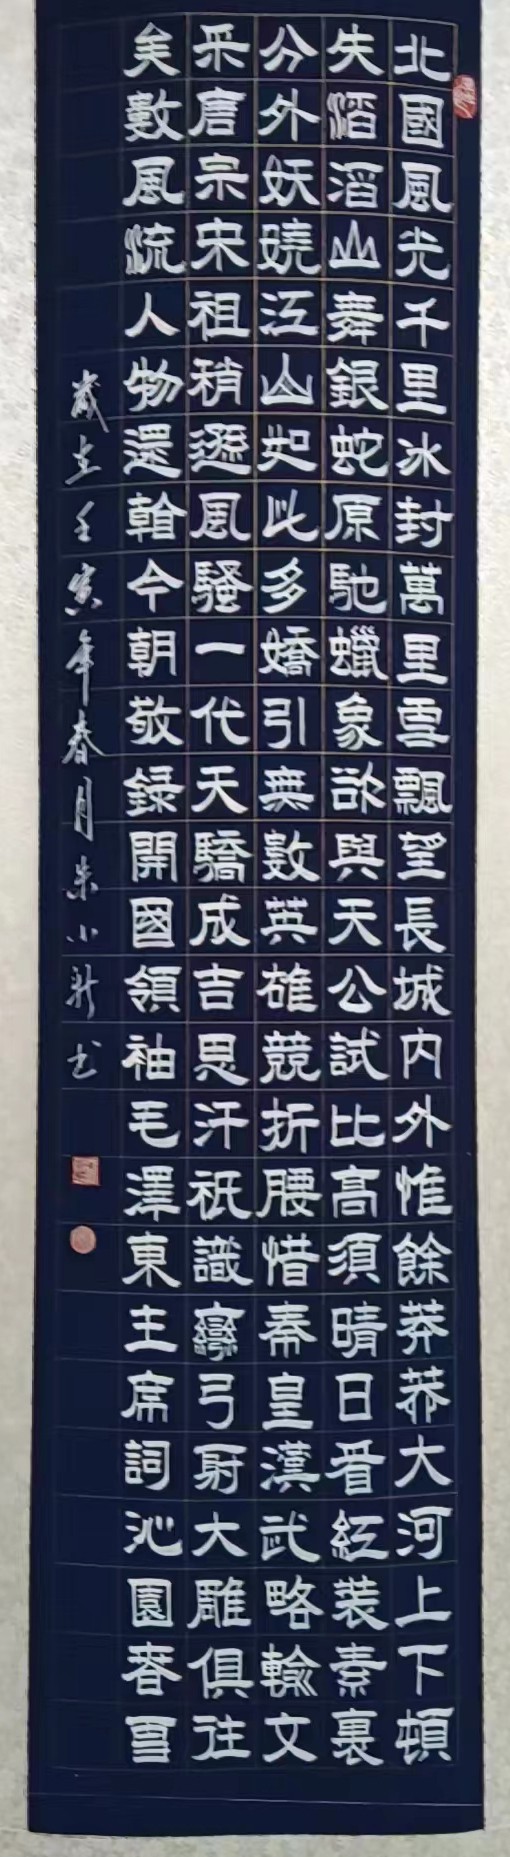 北國風光千里冰封萬里雪飄望長城內外惟餘莽莽大河上下頓
失滔滔山舞銀蛇原馳蠟象欲與天公試比高須晴日看紅装素裹
分外妖嬈江山如此多嬌引無數英雄競折腰惜秦皇漢武略輸文
采唐宗宋祖稍遜風騷一代天驕成吉思汗祇識彎弓射大雕俱往
矣數風流人物還看今朝敬錄開國領袖毛澤東主席詞沁園春雪
歲在壬寅年春月朱小新书